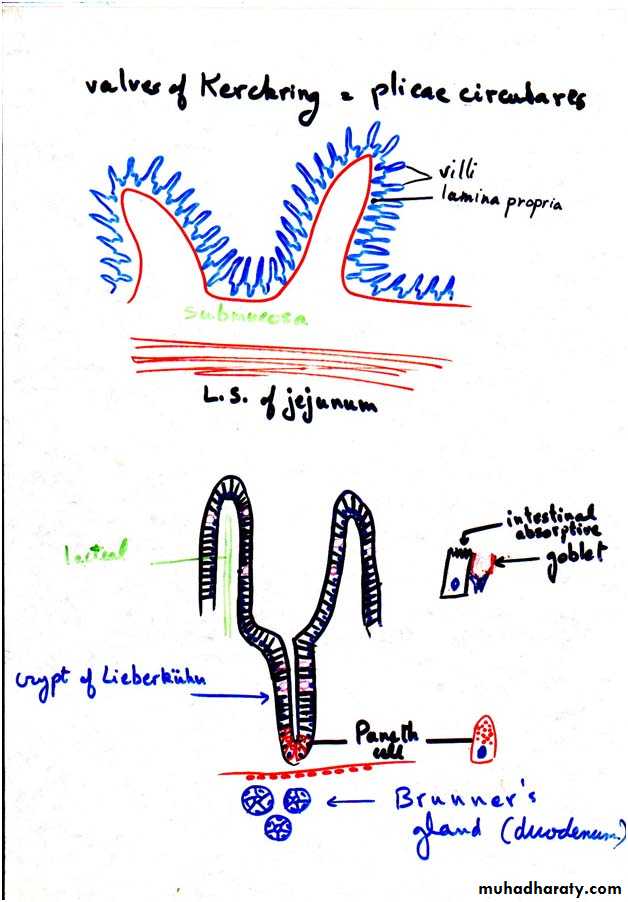 valves of Kerckring = plicae circulares
villi
lamina propria
submucosa
L.S. of jejunum
intestinal
absorptive
goblet
lacteal
crypt of Lieberkühn
Paneth
cell
Brunner's
gland (duodenum)
muhadharaty.com